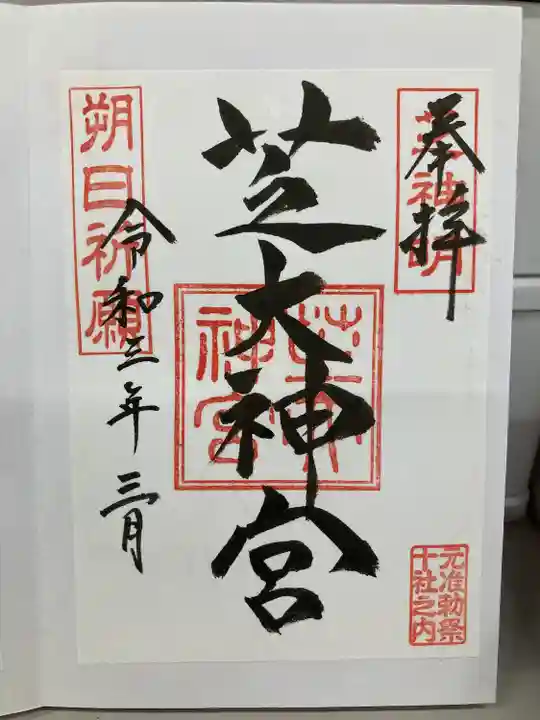 奉拝
芝神明
芝大神宮
芝大神宮
朔日祈願
令和三年 三月
元准勅祭
十社之内